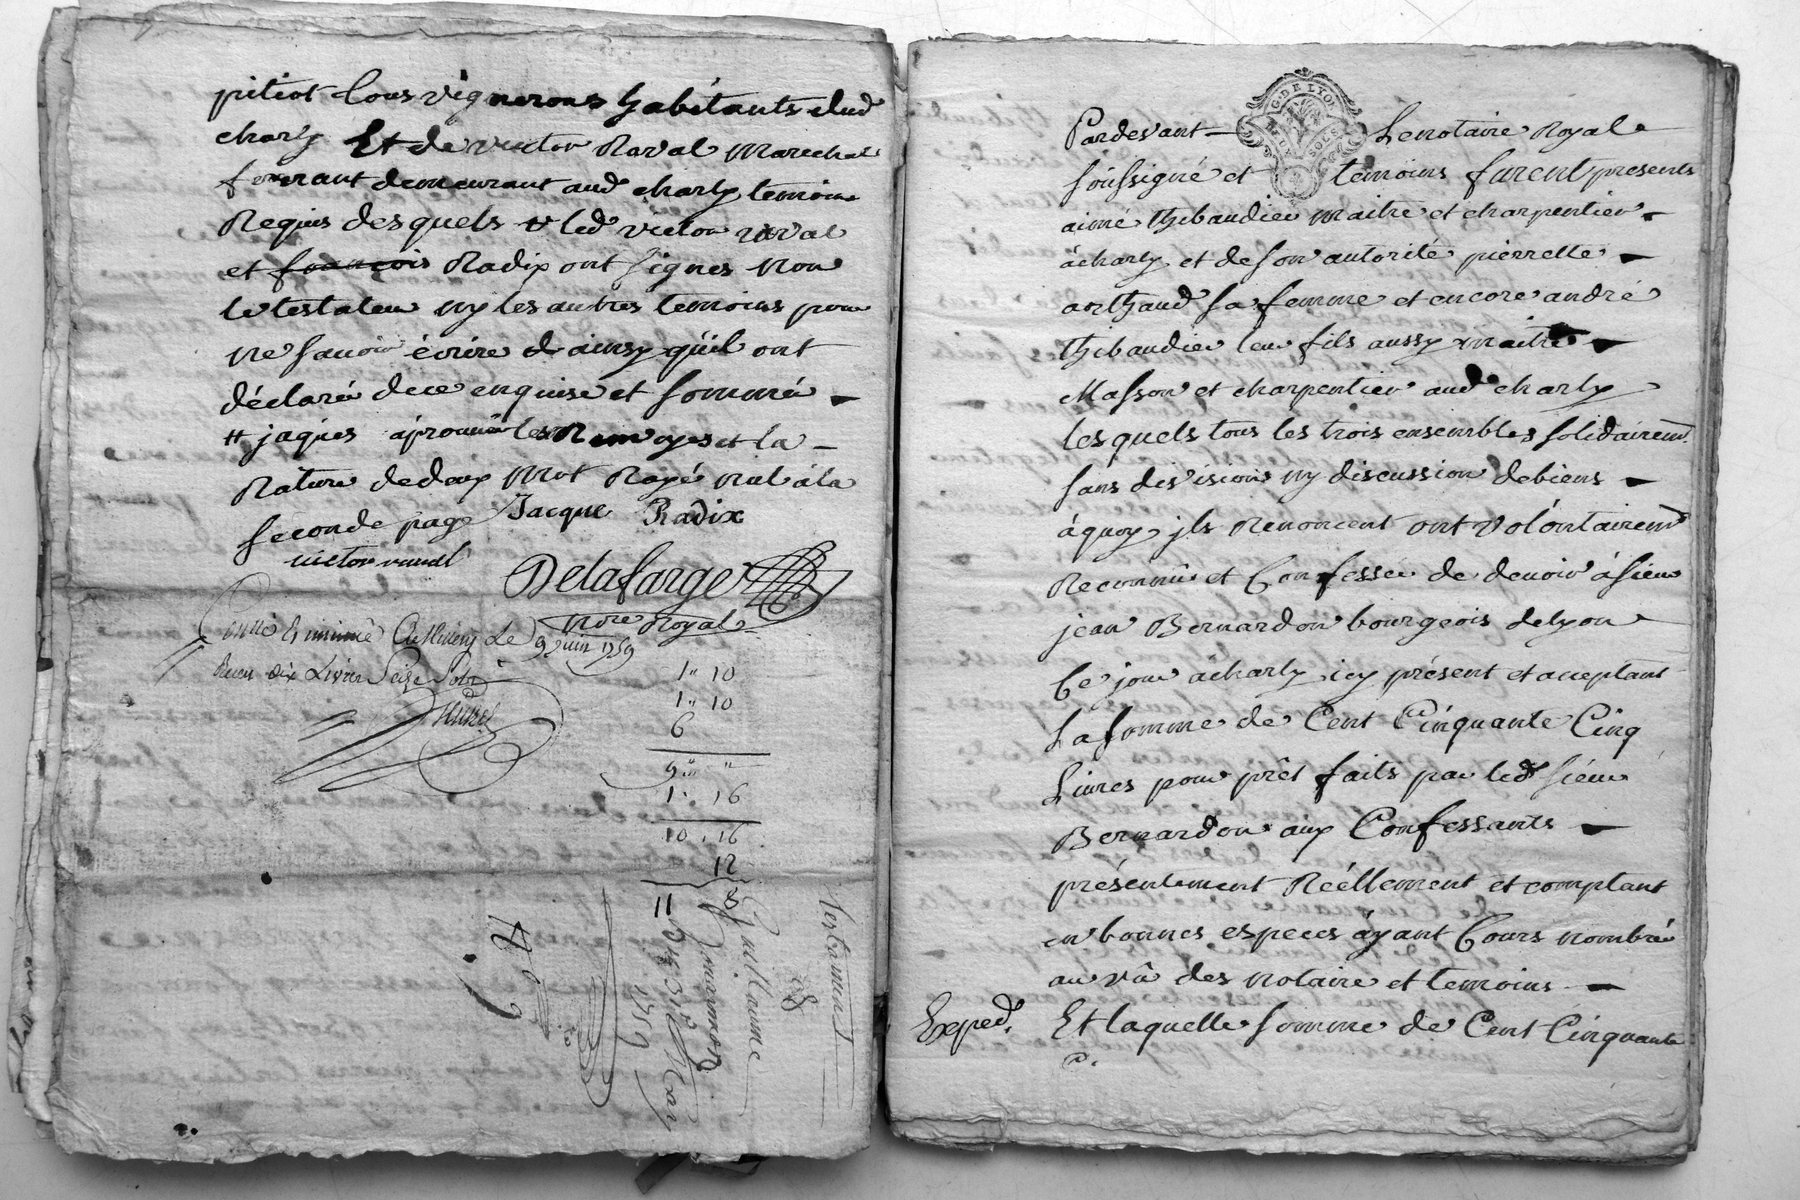 pitiot tous vignerons habétants dud
charly Et de victor Raval marechal
ferrant demeurant aud charly temoins
Requis desquels # led victor raval
et françois Radix ont signés non
le testateur ny les autres temoins pour
ne savoir écrire de ainsy qu'il ont
déclaré de ce enquise et sommé
# jaques aprouvé les Renvoyes et la
Rature de deux mot Rayé nul à la
seconde page Jacque Radix
victor raval
Delafarge
Nore Royal
Controllé insinué a le 9 juin 1759
Reçu dix Livres Seize Sols
1 " 10
1 " 10
6
9 " "
1 " 16
10 " 16
12
11 8
testament
de
Guillaume
Guaymard
Du 31 May
1759
G. DE LYON
DEUX SOLS
Pardevant Le notaire Royal
soussigné et témoins furent presents
aimé thibaudier maitre et charpentier
à charly et de son autorité pierrette
arthaud sa femme et encore andré
thibaudier leur fils aussy maitre
Masson et charpentier aud charly
lesquels tous les trois ensembles solidairemt
sans divisions ny discussion de biens
à quoy ils Renoncent ont volontairemt
Reconnu et Confessé de devoir à sieur
jean Bernardon bourgeois de lyon
Ce jour à charly icy présent et acceptant
La somme de Cent Cinquante Cinq
Livres pour prêt faits par led sieur
Bernardon aux Confessants
présentement Réellement et comptant
en bonnes especes ayant Cours nombré
au vû des notaire et temoins
Exped. Et laquelle somme de Cent Cinquante